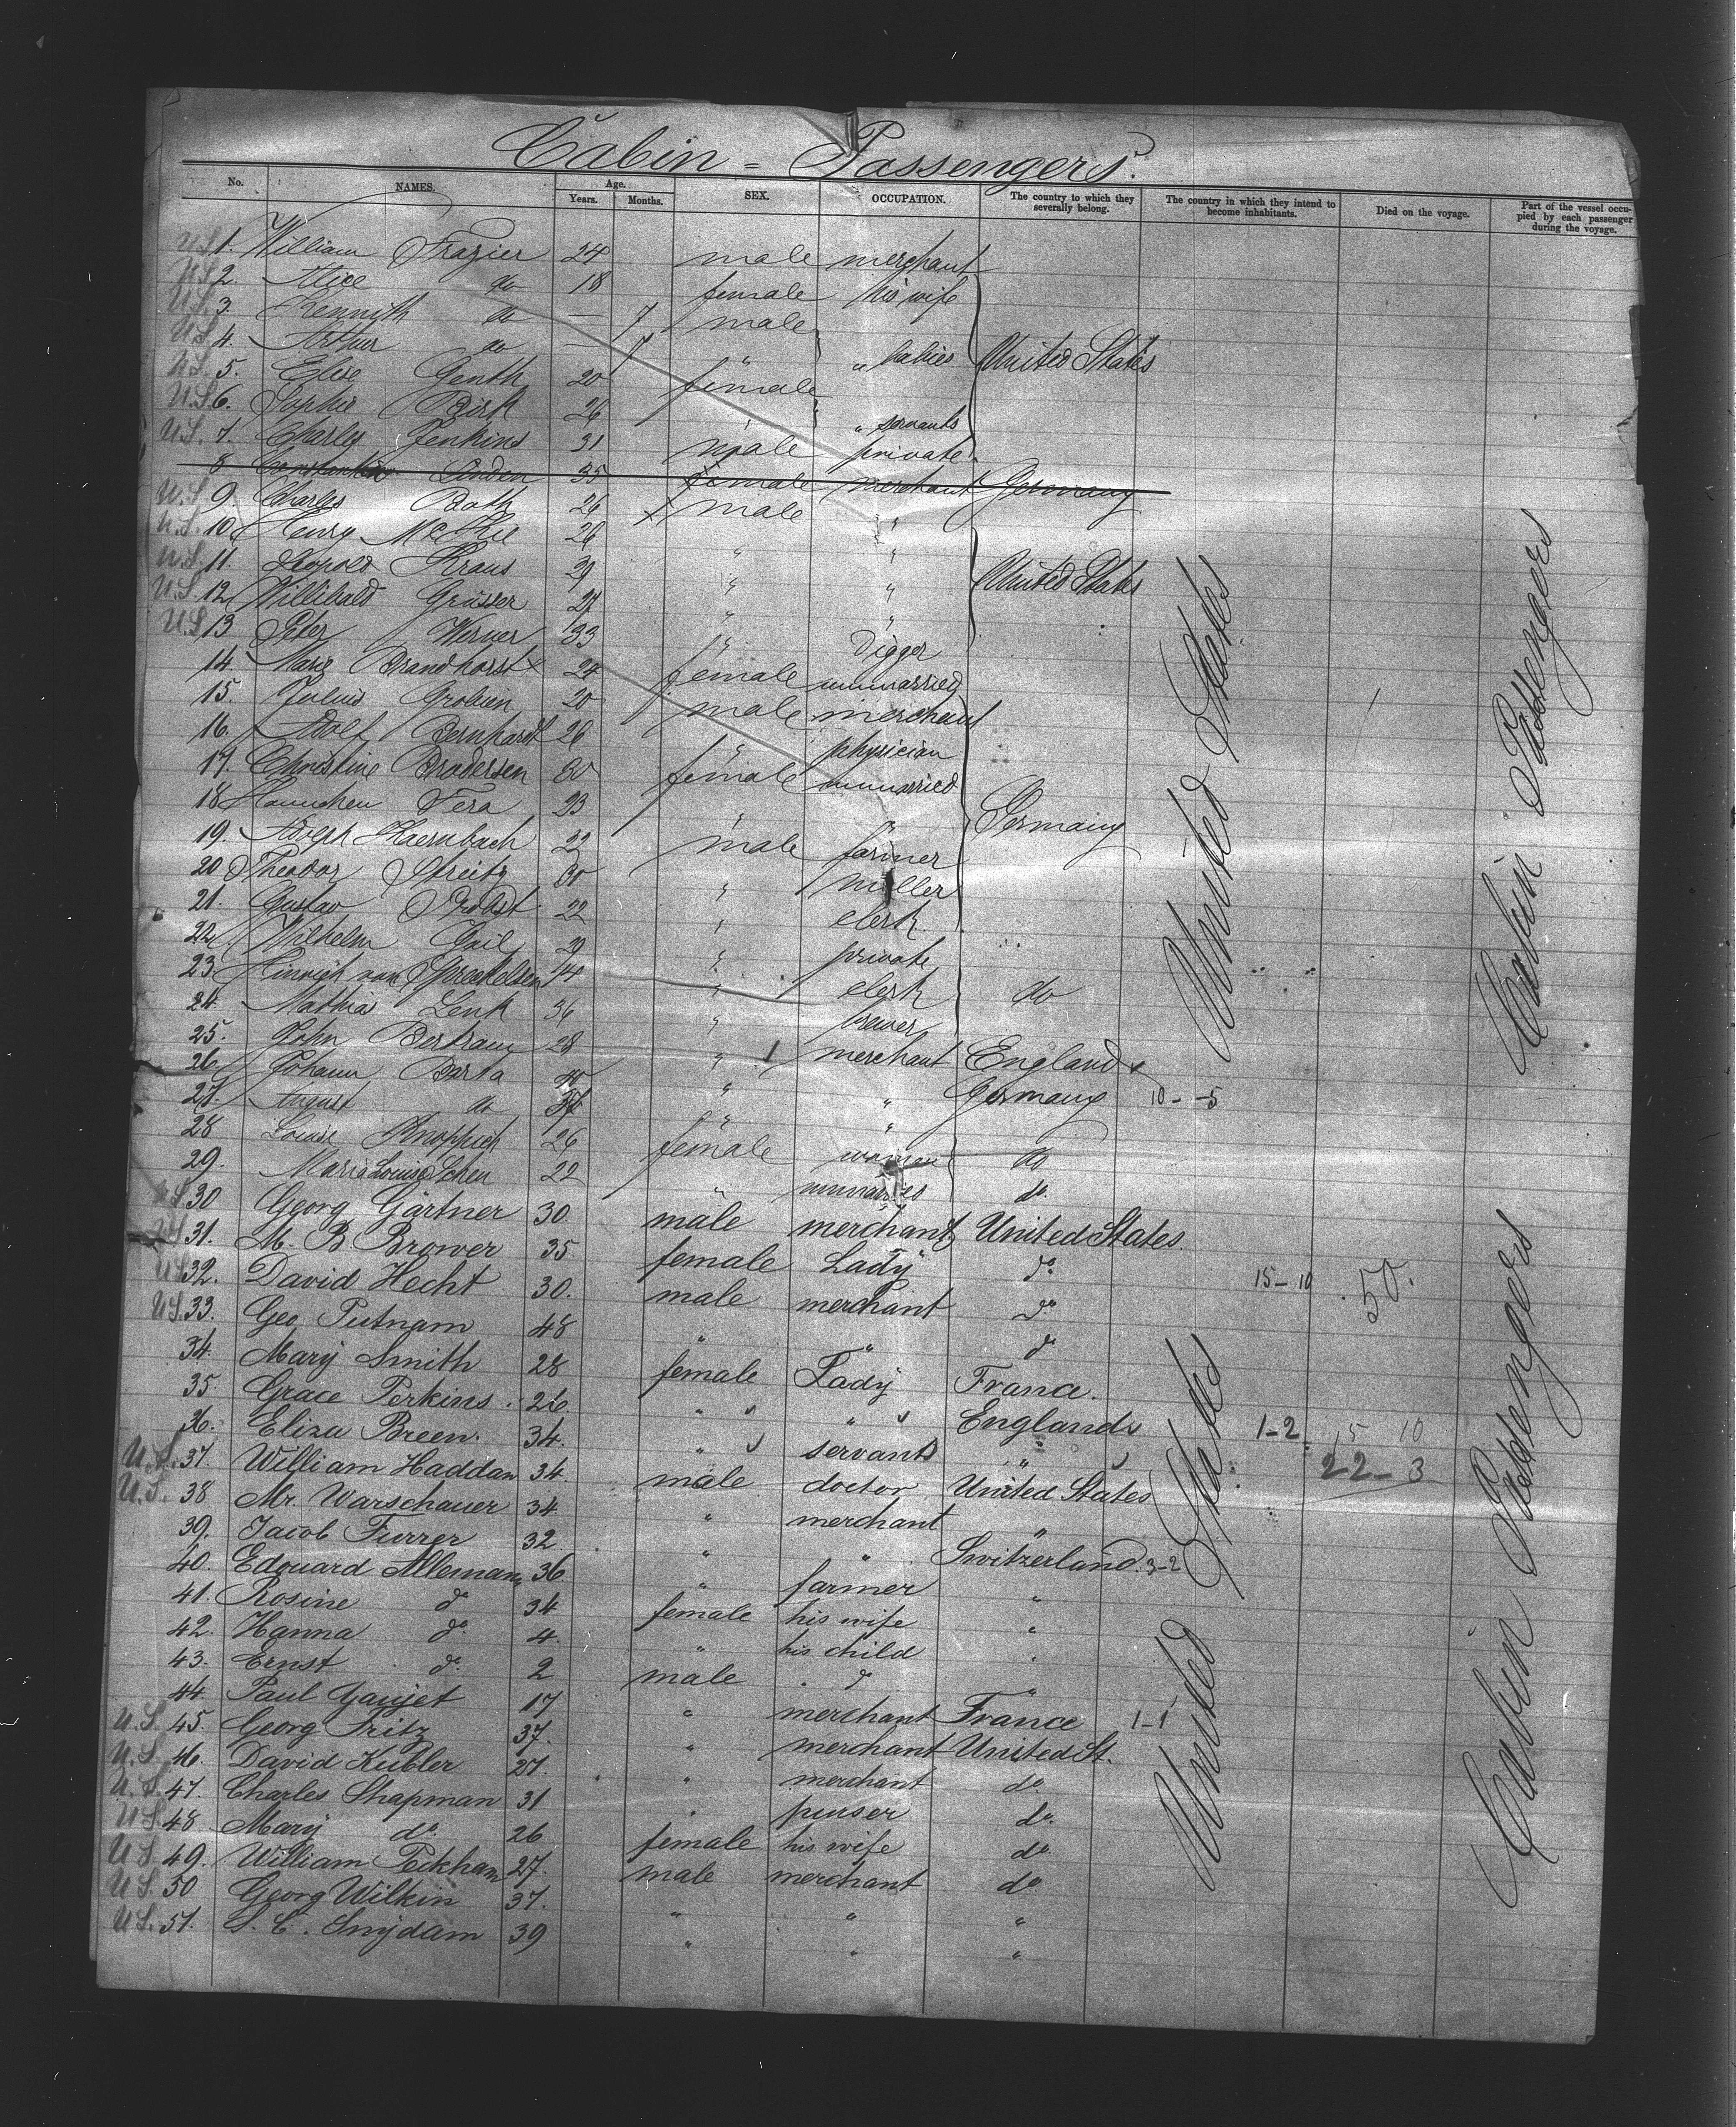 Cabin = Passengers.
No. NAMES. Age. Years. Months. SEX. OCCUPATION. The country to which they severally belong. The country in which they intend to become inhabitants. Died on the voyage. Part of the vessel occupied by each passenger during the voyage.
U.S. 1. William Frazier 24 male merchant
U.S. 2. Alice do 18 female his wife
U.S. 3. Kennith do — 7 male
U.S. 4. Arthur do — 7 " " babies United States
U.S. 5. Elise Genth 20 female
U.S. 6. Sophie Birk 26 " " servants
U.S. 7. Charley Jenkins 31 male private
8 Linden 35 female merchant Germany
U.S. 9. Charles Bath 26 male "
U.S. 10. Henry McPhee 26 " "
U.S. 11. Leopold Kraus 29 " " United States
U.S. 12. Willibald Grüsser 27 " "
U.S. 13 Peter Werner 33 " digger
14. Marie Brandhorst 24 female unmarried
15. Julius Grobien 20 male merchant
16. Adolf Bernhardt 26 " physician
17. Christine Brodersen 30 female unmarried
18 Hannchen Fera 23 " " Germany
19. Adolph Haernbach 22 male farmer
20 Theodor Streitz 30 " miller
21. Gustav Probst 22 " clerk
22. Wilhelm Gail 29 " private
23. Hinrich van Spreckelsen 14 " clerk do
24. Mathias Lenk 36 " brewer
25. John Bertram 28 " merchant England
26. Johann Barta 40 " " Germany 10 - 5
27. August do 34 " "
28 Louise Knoppich 26 female woman do
29. Maria Louise Schen 22 " unmarried do.
U.S. 30 Georg Gärtner 30 male merchant United States.
U.S. 31. M. B. Brower 35 female Lady do.
U.S. 32. David Hecht 30. male merchant do 15 - 10 50.
U.S. 33. Geo. Putnam 48 " " do
34. Mary Smith 28 female Lady France.
35. Grace Perkins 26 " " England
36. Eliza Breen. 34. " servants " 1-2 15 10
U.S. 37. William Haddan 34 male doctor United States 22 - 3
U.S. 38 Mr. Warschauer 34 " merchant "
39. Jacob Furrer 32. " " Switzerland. 3-2
40. Edouard Allemann 36 " farmer "
41. Rosine do 34 female his wife "
42. Hanna do. 4. " his child "
43. Ernst do. 2 male do "
44 Paul 17 " merchant France 1-1
U.S. 45. Georg Fritz 37. " merchant United St.
U.S. 46. David Kübler 27. " merchant do
U.S. 47. Charles Shapman 31 " purser do.
U.S. 48 Mary do. 26 female his wife do.
U.S. 49. William Peckham 27. male merchant do
U.S. 50 Georg Wilkin 37. " " "
U.S. 51. S. C. Snydam 39 " " "
United States
Cabin Passengers
United States
Cabin Passengers